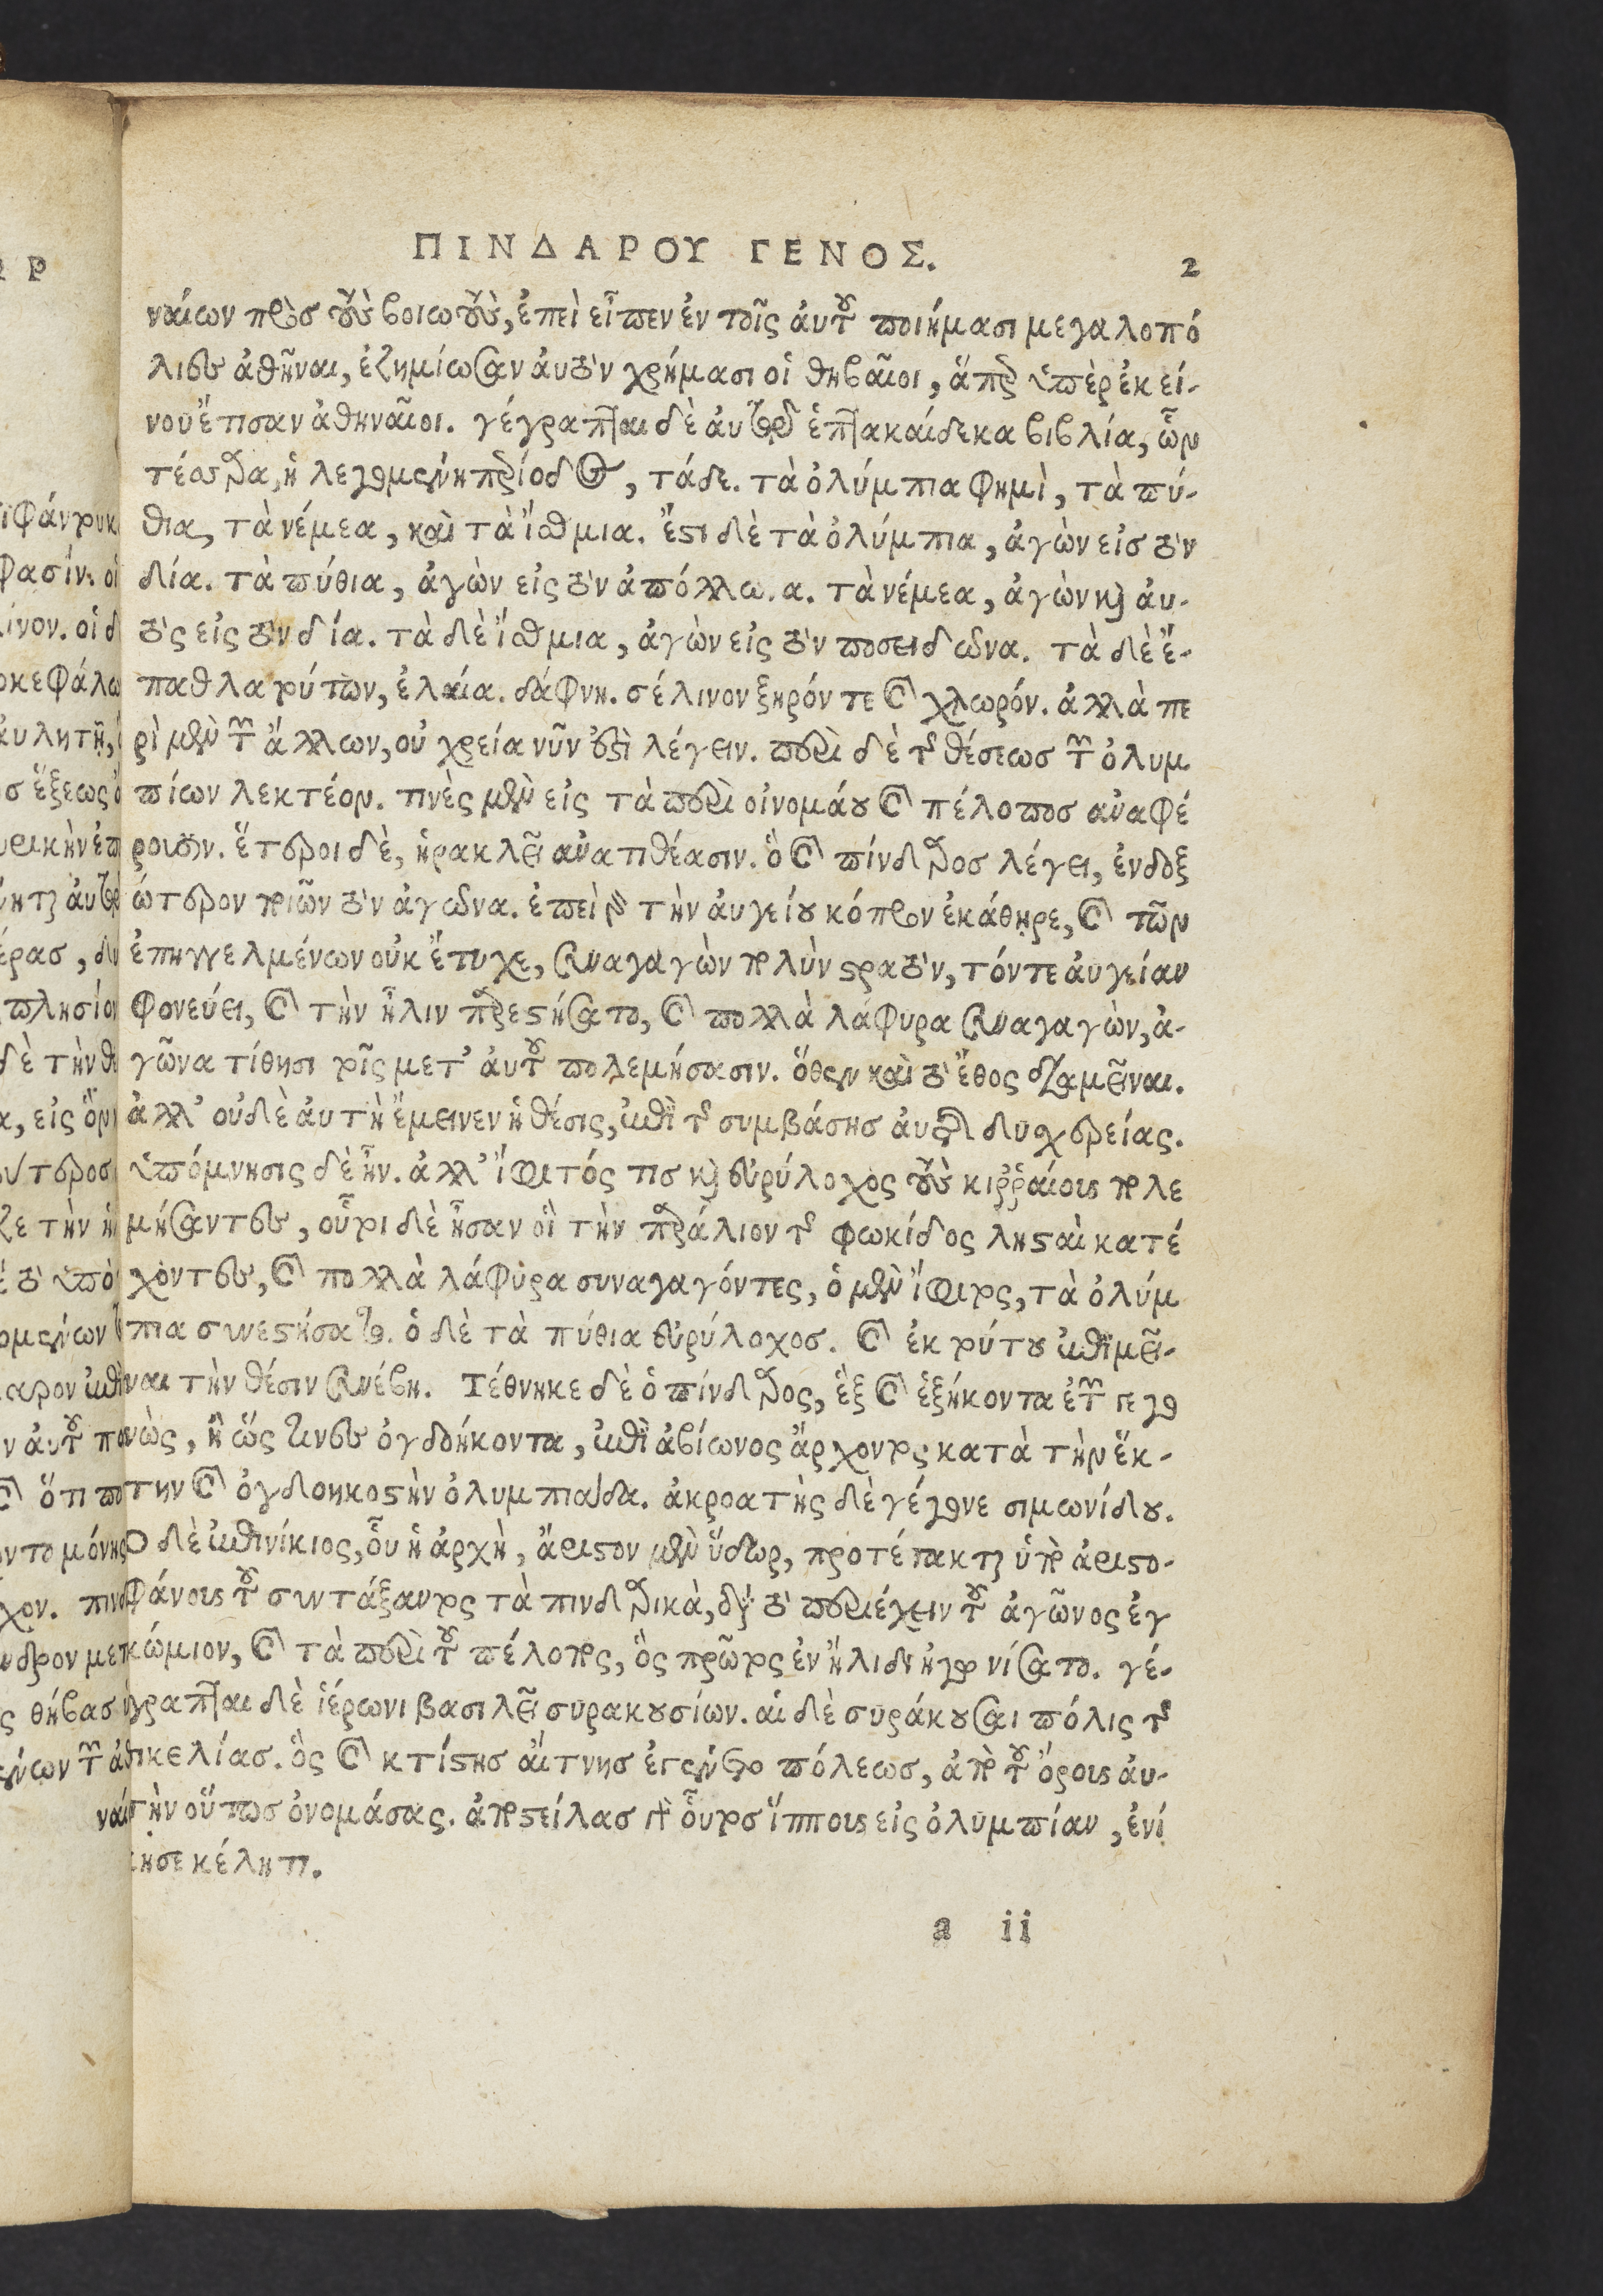 ΠΙΝΔΑΡΟΥ ΓΕΝΟΣ.
2
ναίων πρὸσ τοὺς βοιωτοὺς, ἐπεὶ εἶπεν ἐν τοῖς ἀυτοῦ ποιήμασι μεγαλοπό
λιες ἀθῆναι, ἐζημίωσαν ἀυτὸν χρήμασι οἱ θηβαῖοι, ἅπερ ὑπὲρ ἐκεί-
νου ἔτισαν ἀθηναῖοι. γέγραπται δὲ ἀυτῷ ἑπτακαίδεκα βιβλία, ὧν
τέσσαρα, ἡ λεγομένη περίοδος, τάδε. τὰ ὀλύμπια φημὶ, τὰ πύ-
θια, τὰ νέμεα, καὶ τὰ ἴσθμια. ἔστι δὲ τὰ ὀλύμπια, ἀγὼν εἰσ τὸν
δία. τὰ πύθια, ἀγὼν εἰς τὸν ἀπόλλω.α. τὰ νέμεα, ἀγὼν καὶ ἀυ-
τὸς εἰς τὸν δία. τὰ δὲ ἴσθμια, ἀγὼν εἰς τὸν ποσειδῶνα. τὰ δὲ ἔ-
παθλα τούτων, ἐλαία. δάφνη. σέλινον ξηρόν τε καὶ χλωρόν. ἀλλὰ πε
ρὶ μὲν τῶν ἄλλων, οὐ χρεία νῦν ἐστὶ λέγειν. περὶ δὲ τῆς θέσεωσ τῶν ὀλυμ
πίων λεκτέον. τινὲς μὲν εἰς τὰ περὶ οἰνομάου καὶ πέλοποσ ἀναφέ
ρουσιν. ἕτεροι δὲ, ἡρακλεῖ ἀνατιθέασιν. ὃ καὶ πίνδαροσ λέγει, ἐνδοξ
ώτερον ποιῶν τὸν ἀγῶνα. ἐπεὶ γὰρ τὴν ἀυγείου κόπρον ἐκάθηρε, καὶ τῶν
ἐπηγγελμένων οὐκ ἔτυχε, συναγαγὼν πολὺν στρατὸν, τόντε ἀυγείαν
φονεύει, καὶ τὴν ἦλιν παρεστήσατο, καὶ πολλὰ λάφυρα συναγαγὼν, ἀ-
γῶνα τίθησι τοῖς μετ' ἀυτοῦ πολεμήσασιν. ὅθεν καὶ τὸ ἔθος διαμεῖναι.
ἀλλ' οὐδὲ ἀυτὴ ἔμεινεν ἡ θέσις, ἐπὶ τῆς συμβάσησ ἀυτοῖς δυσχερείας.
ὑπόμνησις δὲ ἦν. ἀλλ' ἴφιτός τισ καὶ εὐρύλοχος τοὺς κιῤῥαίους πολε
μήσαντες, οὗτοι δὲ ἦσαν οἳ τὴν παράλιον τῆς φωκίδος λησταὶ κατέ
χοντες, καὶ πολλὰ λάφυρα συναγαγόντες, ὁ μὲν ἴφιτος, τὰ ὀλύμ
πια συνεστήσατο. ὁ δὲ τὰ πύθια εὐρύλοχοσ. καὶ ἐκ τούτου ἐπιμεῖ-
ναι τὴν θέσιν συνέβη. Τέθνηκε δὲ ὁ πίνδαρος, ἓξ καὶ ἑξήκοντα ἐτῶν γεγο
νὼς, ἢ ὥς τινες ὀγδοήκοντα, ἐπὶ ἀβίωνος ἄρχοντος κατὰ τὴν ἕκ-
την καὶ ὀγδοηκοστὴν ὀλυμπιάδα. ἀκροατὴς δὲ γέγονε σιμωνίδου.
Ὁ δὲ ἐπινίκιος, οὗ ἡ ἀρχὴ, ἄριστον μὲν ὕδωρ, προτέτακται ὑπὸ ἀριστο-
φάνους τοῦ συντάξαντος τὰ πινδαρικὰ, διὰ τὸ περιέχειν τοῦ ἀγῶνος ἐγ
κώμιον, καὶ τὰ περὶ τοῦ πέλοπος, ὃς πρῶτος ἐν ἤλιδι ἠγωνίσατο. γέ-
γραπται δὲ ἱέρωνι βασιλεῖ συρακουσίων. αἱ δὲ συράκουσαι πόλις τῆς
σικελίασ. ὃς καὶ κτίστησ αἴτνησ ἐγένετο πόλεωσ, ἀπὸ τοῦ ὄρους ἀυ-
τὴν οὕτωσ ὀνομάσας. ἀποστείλασ γὰρ οὗτοσ ἵππους εἰς ὀλυμπίαν, ἐνί
κησε κέλητι.
a ii